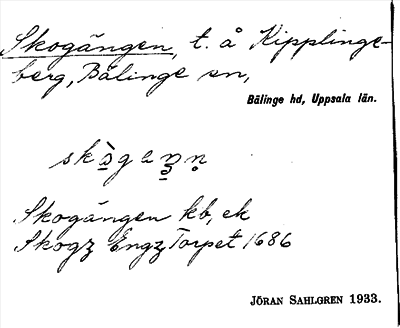 Skogängen, t. å Kipplinge-
berg, Bälinge sn,
Bälinge hd, Uppsala län.
Skogängen kb, ek
Skogz Engz Torpet 1686
JÖRAN SAHLGREN 1933.